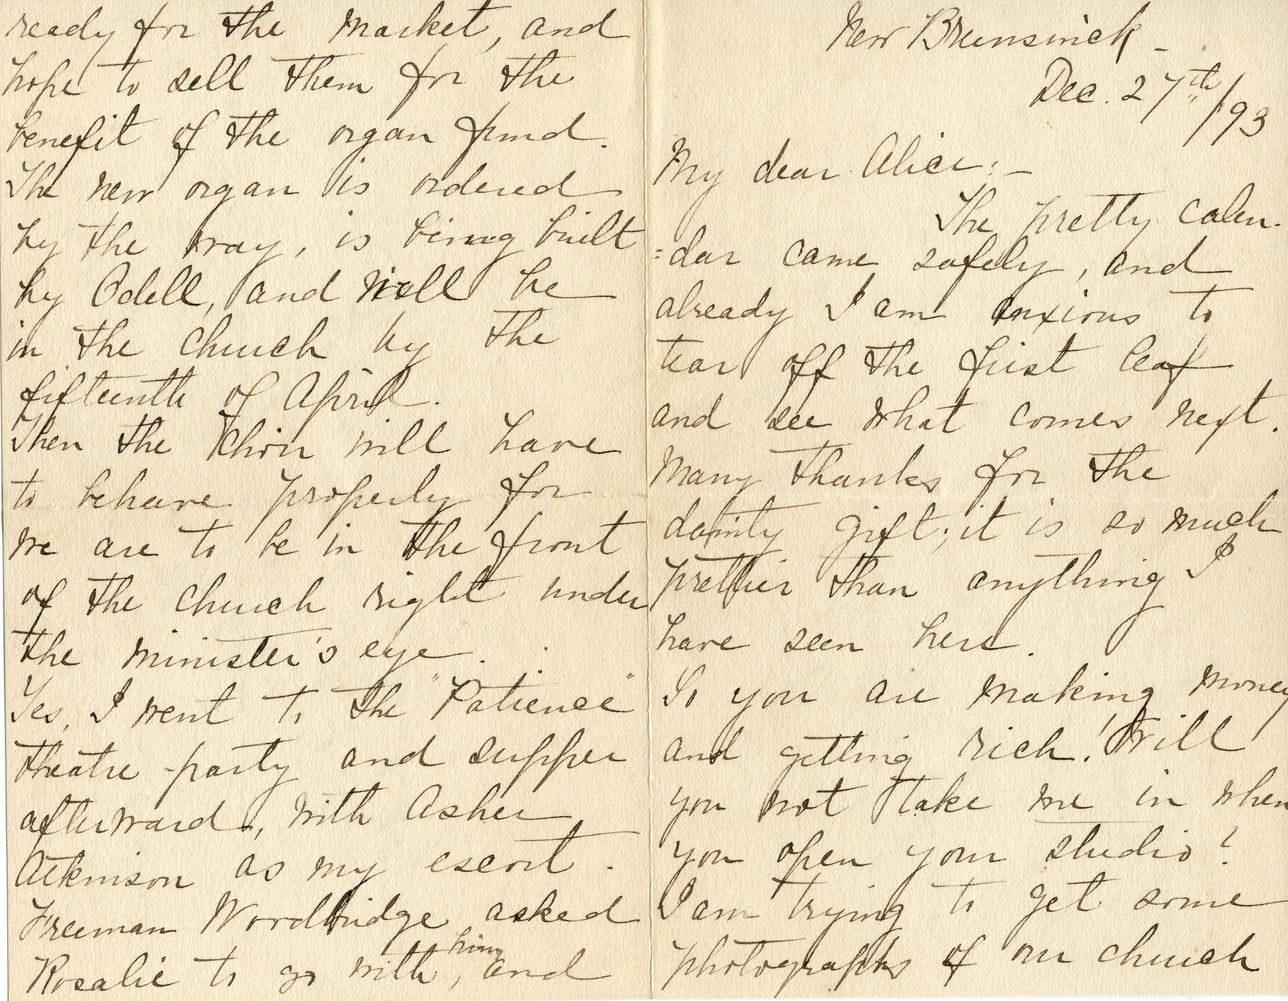 New Brunswick -
Dec. 27th/93
My dear Alice: -
The pretty calen-
=dar came safely, and
already I am anxious to
tear off the first leaf
and see what comes next.
Many thanks for the
dainty gift; it is so much
prettier than anything I
have seen here.
So you are making money
and getting rich! Will
you not take me in when
you open your studio?
I am trying to get some
photographs of our church
ready for the market, and
hope to sell them for the
benefit of the organ fund.
The new organ is ordered
by the way, is being built
by Odell, and will be
in the church by the
fifteenth of April.
Then the choir will have
to behave properly for
we are to be in the front
of the church right under
the minister's eye.
Yes, I went to the "Patience"
theatre party and supper
afterward, with Asher
Atkinson as my escort.
Freeman Woodbridge asked
Rosalie to go with him, and